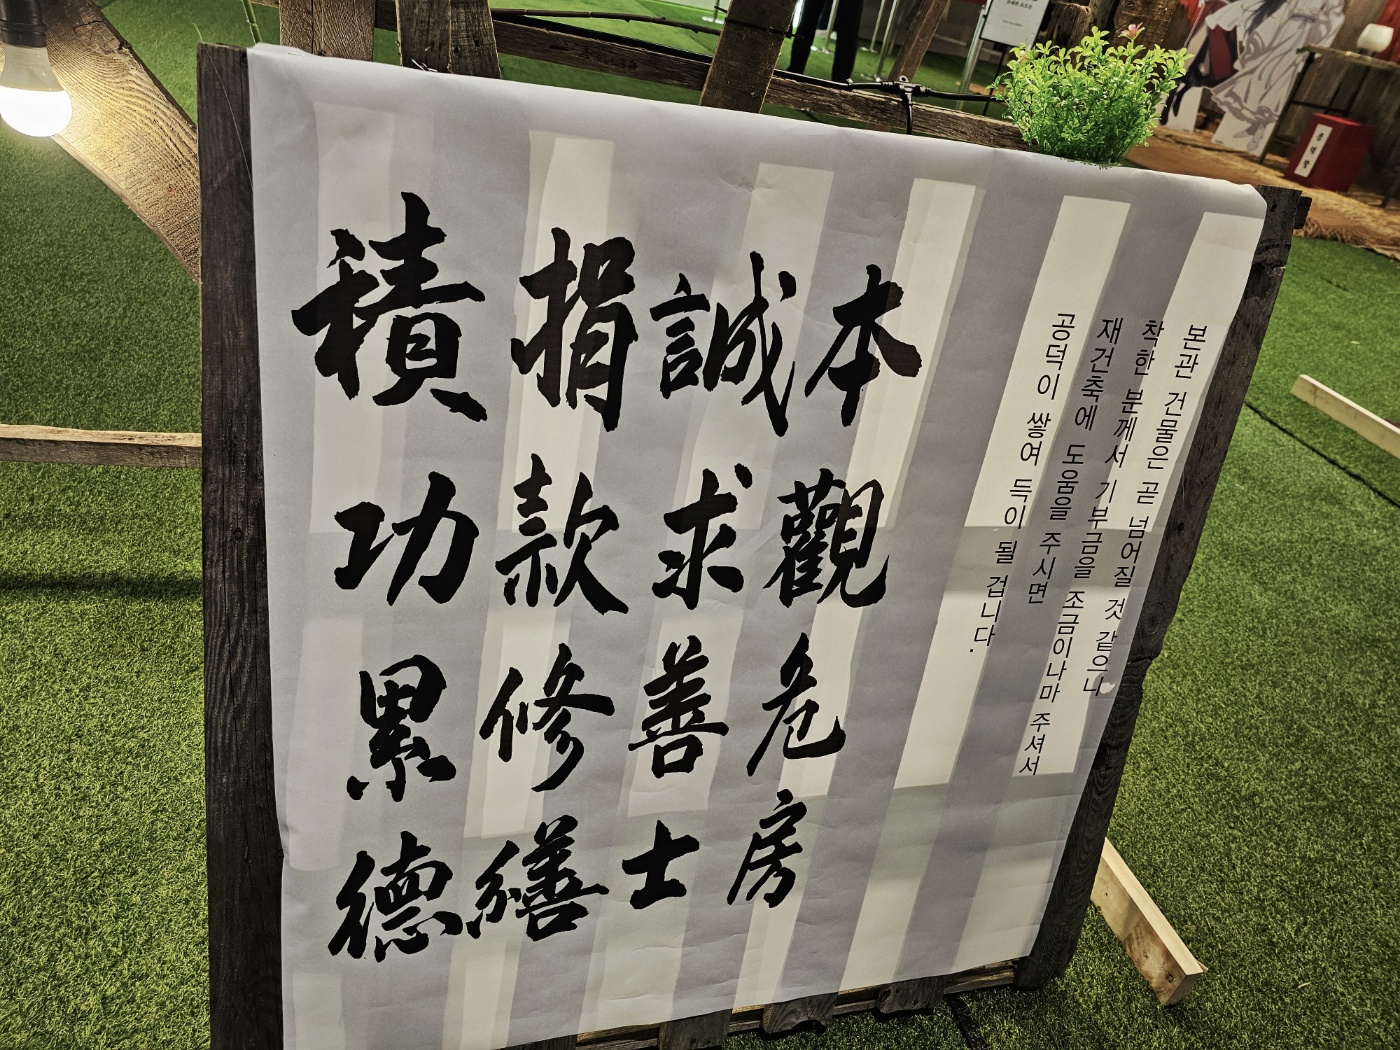 本觀危房
誠求善士
捐款修繕
積功累德
본관 건물은 곧 넘어질 것 같으니
착한 분께서 기부금을 조금이나마 주셔서
재건축에 도움을 주시면
공덕이 쌓여 득이 될 겁니다.
공덕함